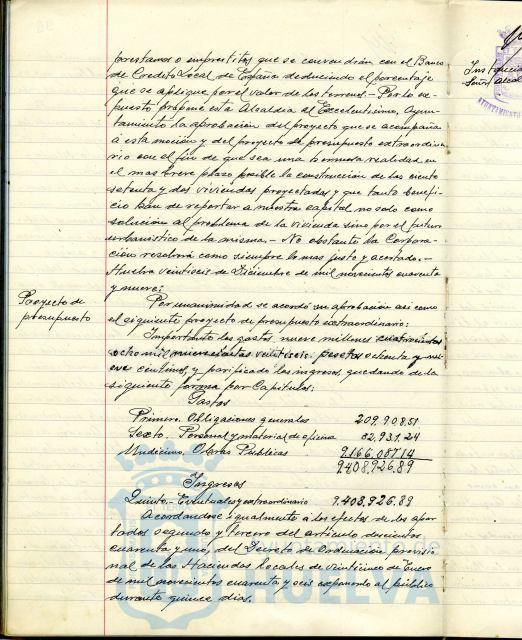 prestamos o emprestitos que se convendrán con el Banco
de Credito Local de España deduciendo el porcentaje
que se aplique por el valor de los terrenos.- Por lo ex-
puesto propone esta Alcaldia al Excelentisimo Ayun-
tamiento la aprobación del proyecto que se acompaña
a esta moción y del proyecto de presupuesto extraordina
rio con el fin de que sea una hermosa realidad en
el mas breve plazo posible la construccion de las ciento
setenta y dos viviendas proyectadas y que tanto benefi-
cio han de reportar a nuestra capital no solo como
solución al problema de la vivienda sino por el futuro
urbanistico de la misma.- No obstante la Corpora-
cion resolverá como siempre lo mas justo y acertado.-
Huelva veintiseis de Diciembre de mil novecientos cuarenta
y nueve:
Proyecto de
presupuesto
Por unanimidad se acordó su aprobación asi como
el siguiente proyecto de presupuesto extraordinario:
Importante los gastos nueve millones cuatrocientas
ocho mil novecientas veintiseis pesetas ochenta y nu-
eve centimos, y parificado los ingresos quedando de la
siguiente forma por Capitulos:
Gastos
Primero. Obligaciones generales 209.908.51
Sexto. Personal y material de oficina 32.931.24
Undecimo. Obras Publicas 9.166.087.14
9.408.926.89
Ingresos
Quinto.- Eventuales y extraordinario 9.408.926.89
Acordandose igualmente a los efectos de los apar
tados segundo y tercero del articulo doscientos
cuarenta y uno, del Decreto de Ordenación provisio
nal de las Haciendas Locales de veinticinco de Enero
de mil novecientos cuarenta y seis exponerlo al público
durante quince dias.
Señor Alcal
AYUNTAMIENTO
Ayuntamiento de
HUELVA